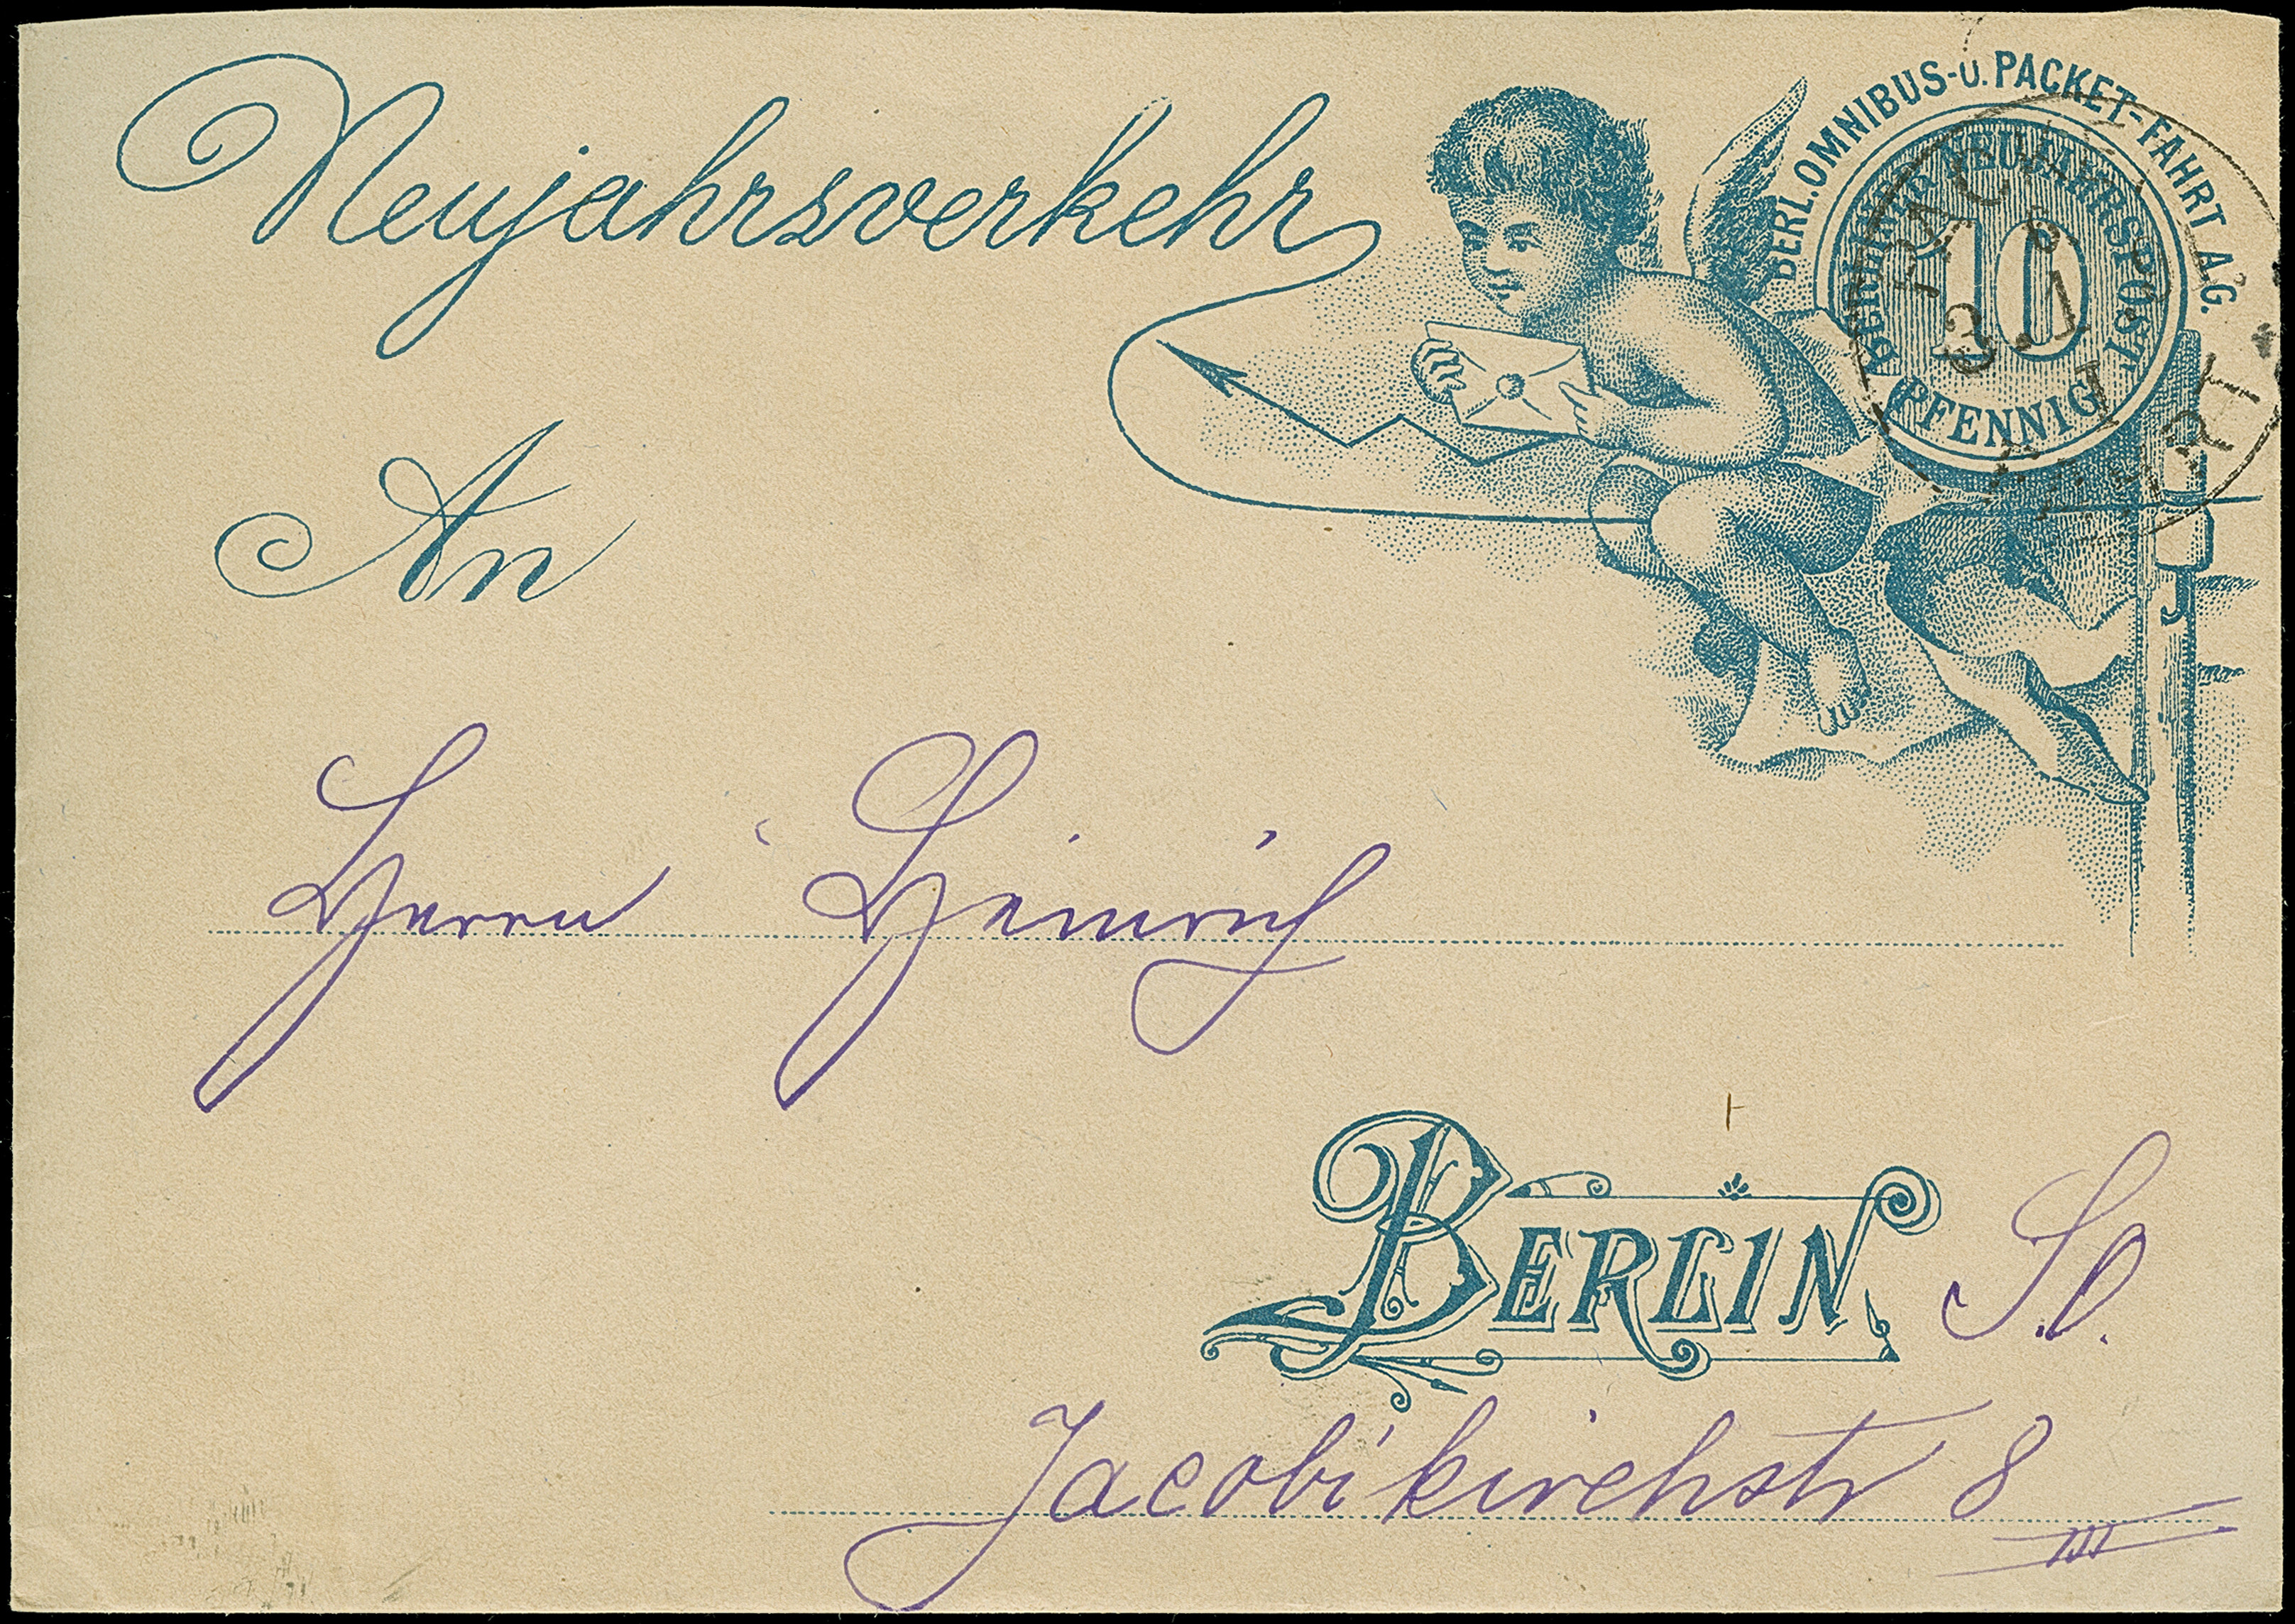 Neujahrsverkehr
BERL. OMNIBUS- U. PACKET-FAHRT A.G.
BERLINER NEUJAHRSPOST
10
PFENNIG
PACK
FAHRT
An
Herrn Heinrich
BERLIN S.O.
Jacobikirchstr 8
III